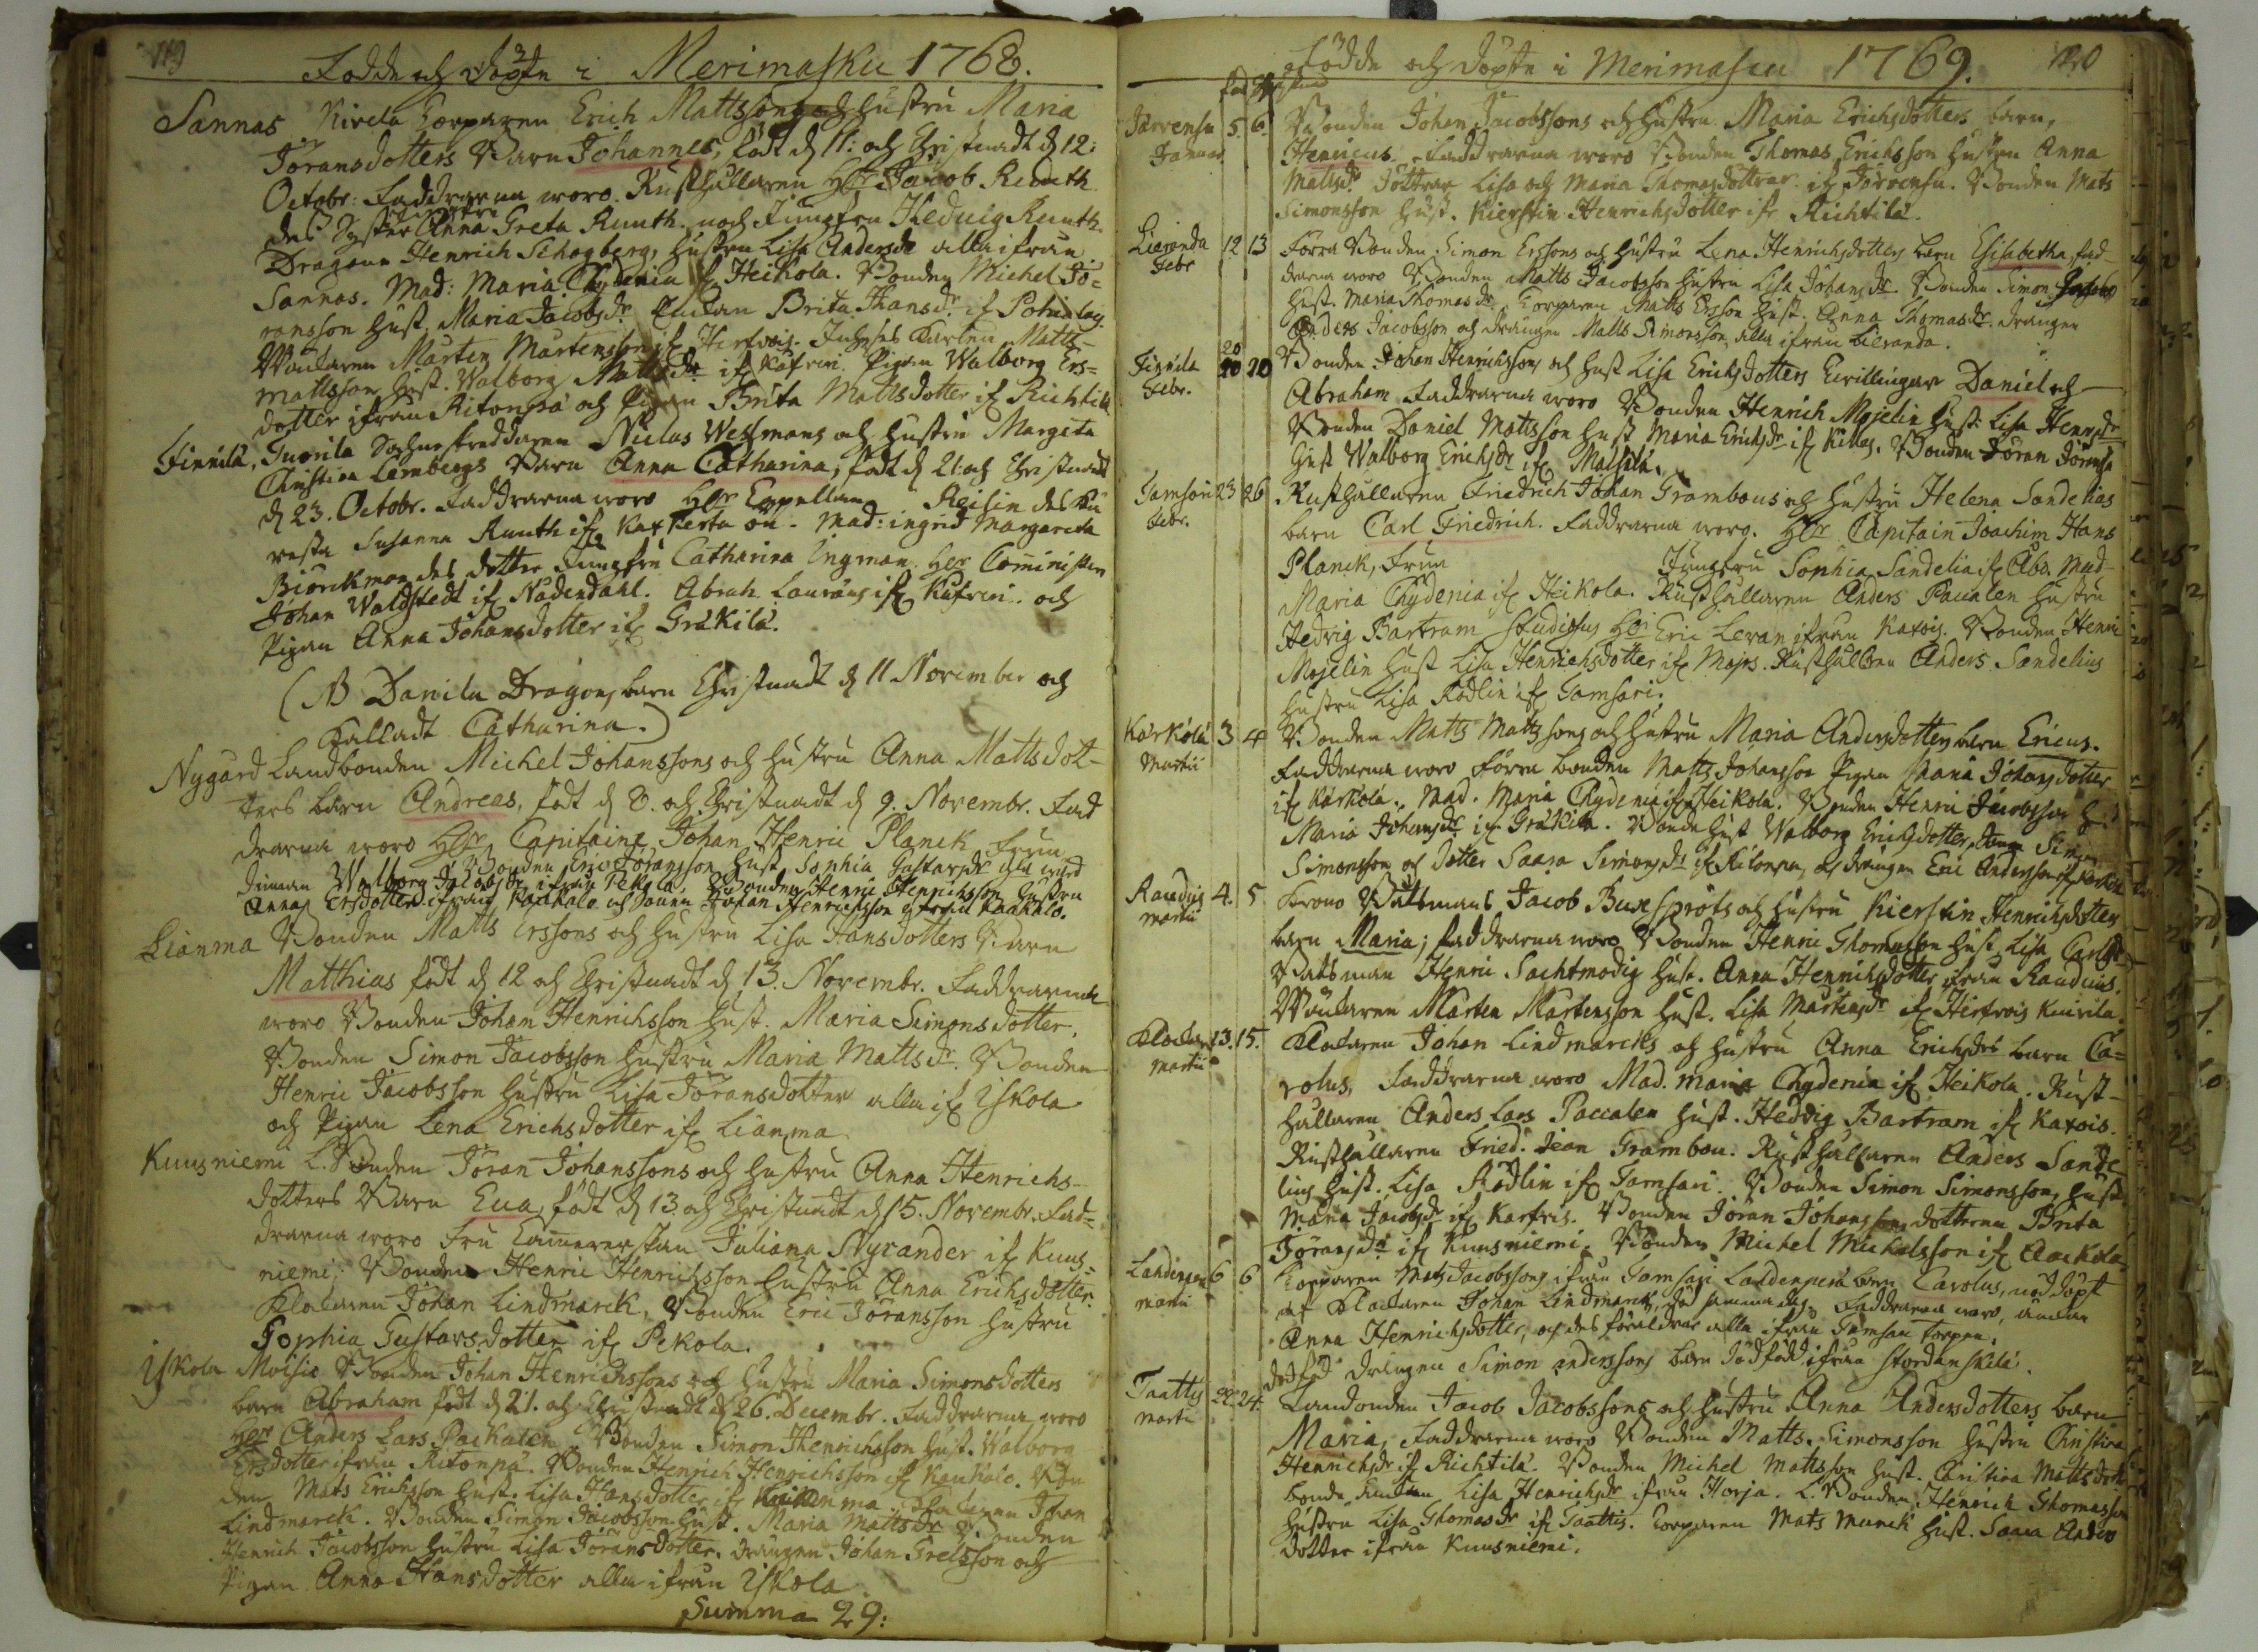 119
Födde och Döpte i Merimasku 1768.
Sannas Kircla Torparen Erich Mattssons och hustru Maria
Jöransdotters Barn Johannes, födt d 11: och Christnadt d 12:
Octobr: Faddrarna woro Rusthållaren Hr Jacob Ruuth
des Syster Anna Greta Ruuth, och Jungfru Hedvig Ruuth.
Dragoun Henrich Schogberg, hustru Lisa Andersdr alla ifrån
Sannas. Mad: Maria Chydenia if Heikola. Bonden Michel Jö=
ransson hust. Maria Jacobsdr Enkan Brita Hansdr if
Mårten Mårtensson if Herfois. Matts
Mattsson hust. Walborg Mattsdr if Kufreri. Pigan Walborg Ers=
dotter ifrån Ritonpä och Pigan Brita Matts dotter if Richtilä
Finnilä, Tuorila Niclas Wessmans och hustru Margeta
Christina Lembergs Barn Anna Catharina, födt d 21 och Christnadt
d 23. Octobr. Faddrarna woro Hr Capellan Reilin des
Susanna Ruuth if Mad: Ingrid Margareta
Biörckman des dotter Jungfru Catharina Ingman. Hr Comministern
Johan Waldstedt if Nådendahl. Abrah. Lauräus if Kufreri. och
Pigan Anna Johansdotter if Gräkilä.
(NB Danila Dragons barn Christnadt d 11 November och
Kalladt Catharina.)
Nygård Landbonden Michel Johanssons och hustru Anna Mattsdot-
ters barn Andreas, födt d 8. och Christnadt d 9. Novembr. Fad
drarna woro Hr Capitaine Johan Henric Planck Frun
Bonden Eric Jöransson hust. Sophia Gustafsdr
Walborg Jacobsdr ifrån Pekola, Bonden Henric Henrichsson hustru
Anna Ersdotter ifrån Kaakalo och Johan Henrichsson ifrån Kaakalo.
Lianma Bonden Matts Erssons och hustru Lisa Hansdotters Barn
Matthias födt d 12 och Christnadt d 13. Novembr. Faddrarna
woro Bonden Johan Henrichsson hust. Maria Simonsdotter,
Bonden Simon Jacobsson hustru Maria Mattsdr. Bonden
Henric Jacobsson hustru Lisa Jöransdotter alla if Yskola
och Pigan Lena Erichsdotter if Lianma
Kuusniemi L. Bonden Jöran Johanssons och hustru Anna Henrichs-
dotters Barn Eva, födt d 13. och Christnadt d 15. Novembr. Fad=
drarna woro Fru Juliana Nycander if Kuus=
niemi; Bonden Henric Henrichsson hustru Anna Erichsdotter.
Klockaren Johan Lindmarck, Bonden Eric Jöransson hustru
Sophia Gustavsdotter if Pekola.
Yskola Moisio Bonden Johan Henrichssons och hustru Maria Simonsdotters
barn Abraham födt d 21. och Christnadt d 26. Decembr. Faddrarna woro
Hr Anders Lars Packalen Bonden Simon Henrichsson hust. Walborg
Ersdotter ifrån Ritonpä. Bonden Henrich Henrichsson if Kaukalo. Bon
den Mats Erichsson hust. Lisa Hansdotter if Klockaren Johan
Lindmarck. Bonden Simon Jacobsson hust. Maria Mattsdr Bonden
Henrich Jacobsson hustru Lisa Jöransdotter. drängen Johan Grelsson och
Pigan Anna Hansdotter alla ifrån Yskola
Summa 29:
Födde och Döpte i Merimasku 1769.
120
Järvensu 5. 6. Bonden Johan Jacobssons och hustru Maria Erichsdotters barn,
Januar. Henricus. Faddrarna woro Bonden Thomas Erichsson hustru Anna
Matsdr döttrar Lisa och Maria Thomasdöttrar if Järvensu. Bonden Mats
Simonsson hust. Kierstin Henrichsdotter if Richtilä.
Lieranda 12 13 Förra Bonden Simon Erssons och hustru Lena Henrichsdotters barn Elisabetha, Fad
Febr drarna woro Bonden Matts Jacobsson hustru Lisa Johansdr Bonden Simon
hust. Maria Thomasdr Torparen Matts Ersson hust. Anna Thomasdr. drängen
Anders Jacobsson och drängen Matts Simonsson, alla ifrån Lieranda.
Finnilä 20 20 Bonden Johan Henrichssons och hust Lisa Erichsdotters twillingar Daniel och
Febr. Abraham Faddrarna woro Bonden Henrich Majelin hust. Lisa Henrsdr
Bonden Daniel Mattsson hust Maria Erichsdr if Killas. Bonden Jöran Jöransson
hust Walborg Erichsdr if Maisilä.
Tamsari 23 26 Rusthållaren Friedrich Johan Grambous och hustru Helena Sandelias
Febr. barn Carl Friedrich. Faddrarna woro. Hr Capitain Joachim Hans
Planck, Frun Jungfru Sophia Sandelia if Åbo. Mad
Maria Chydenia if Heikola. Rusthållaren Anders Paccalen hustru
Hedvig Bartram Studiosus Hr Eric Levan ifrån Kaxois. Bonden Henric
Majelin hust Lisa Henrichsdotter if Rusthållaren Anders Sandelius
hustru Lisa Rödlin if Tamsari.
Karkola 3 4 Bonden Matts Mattssons och hustru Maria Andersdotters barn Ericus.
Martii Faddrarna woro Förra bonden Matts Johansson Pigan Maria Johansdotter
if Karkola. Mad. Maria Chydenia if Heikola. Bonden Henric Jacobsson
Maria Johansdr if Gräkilä. hust Walborg Erichsdotter Simon
Simonsson och dotter Saara Simonsdr if Ritonpä, och drängen Eric Andersson if Karkola
Raudois 4. 5 Jacob Buxsprots och hustru Kierstin Henrichsdotters
Martii barn Maria; Faddrarna woro Bonden Henric Thomasson hust. Lisa
Båtsman Henric Sachtmodig hust. Anna Henrichsdotter ifrån Raudois.
Mårten Mårtensson hust. Lisa Mårtensdr if Herfois Kuirila.
13. 15. Klockaren Johan Lindmarcks och hustru Anna Erichsdrs barn Ca=
Martii rolus, Faddrarna woro Mad. Maria Chydenia if Heikola. Rust-
hållaren Anders Lars Paccalen hust. Hedvig Bartram if Kaxois.
Rusthållaren Fried. Jean Grambou. Rusthållaren Anders Sande
lius hust. Lisa Rödlin if Tamsari. Bonden Simon Simonsson, hust
Maria Jacobsdr if Karfris. Bonden Jöran Johansson dotteren Brita
Jöransdr if Kuusniemi. Bonden Michel Michelsson if Aackola
Landenperä 6 6 Torparen Mats Jacobssons ifrån Tamsari Landenperä barn Carolus, nöddöpt
Martii af Klockaren Johan Lindmarck, död samma dag. Faddrarna woro,
Anna Henrichsdotter, och des föräldrar alla ifrån Tamsari torpen.
dödföd drängen Simon Anderssons barn dödfödd ifrån
Taattis 22. 24. Landbonden Jacob Jacobssons och hustru Anna Andersdotters barn
Martii Maria, Faddrarna woro Bonden Matts Simonsson hustru Christina
Henrichsdr if Richtilä. Bonden Michel Mattsson hust. Christina Mattsdott
bonde Enkan Lisa Henrichsdr ifrån Horja. L. Bonden Henrich Thomasson
hustru Lisa Thomasdr if Taattis. Torparen Mats Munck hust. Saara Anders
dotter ifrån Kuusniemi.